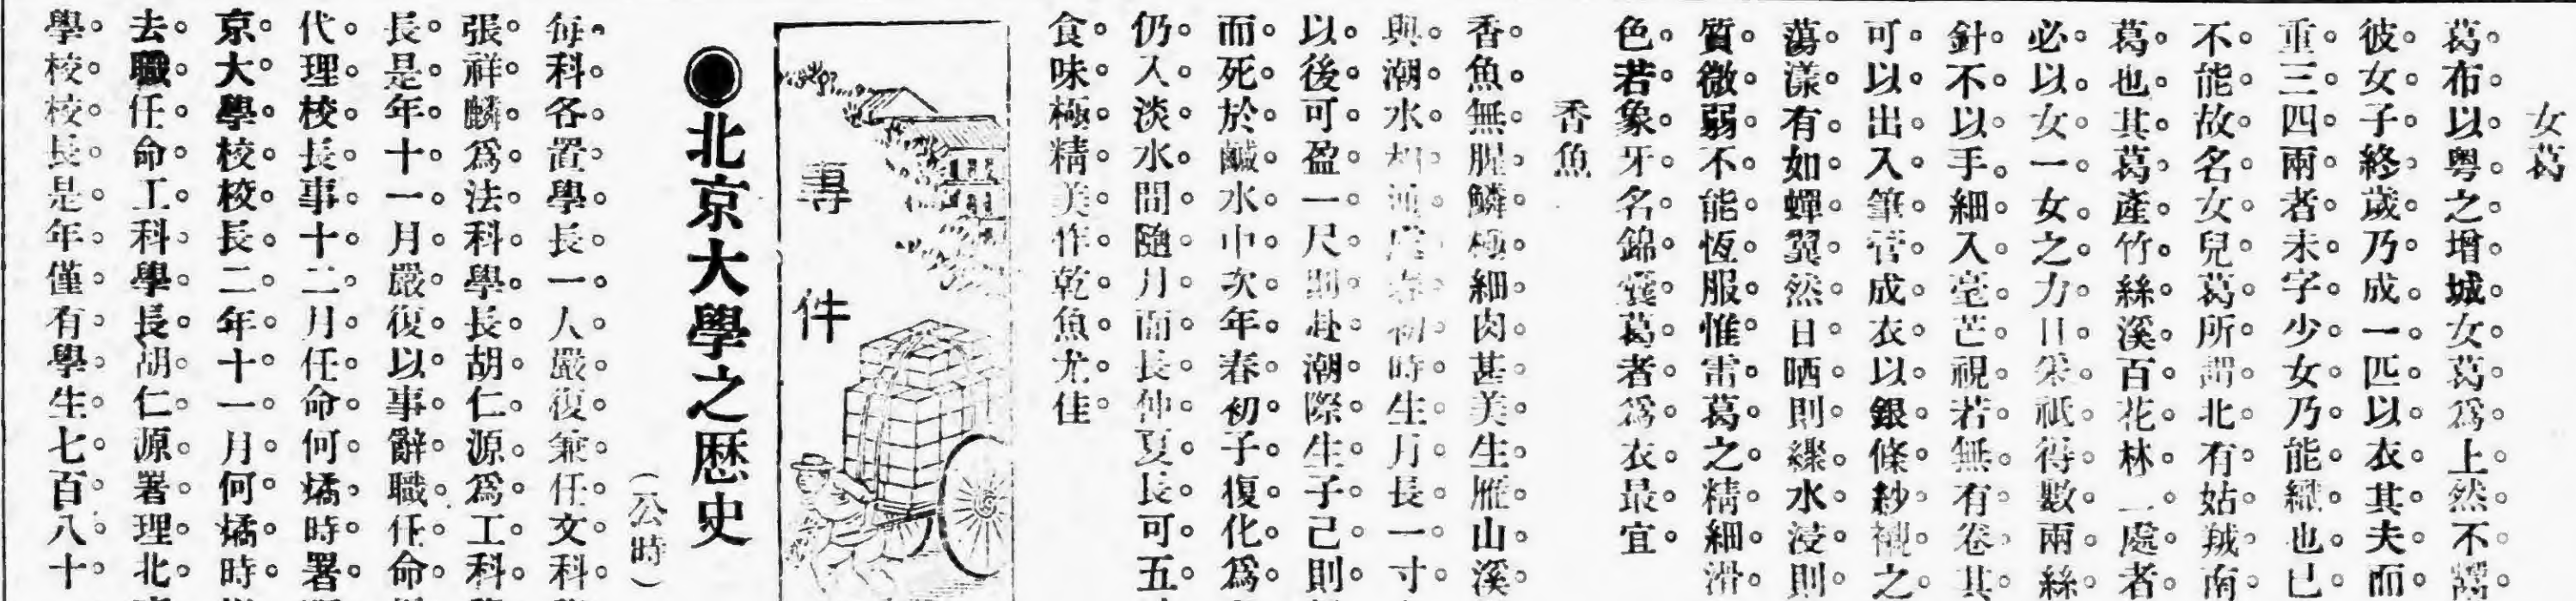 女葛
葛布以粤之增城女葛爲上然不
彼女子終歲乃成一匹以衣其夫而
重三四兩者未字少女乃能織也已
不能故名女兒葛所謂北有姑絨南
葛也其葛產竹絲溪百花林二處者
必以女一女之力日采祇得數兩絲
針不以手細入毫芒視若無有卷其
可以出入筆管成衣以銀條紗襯之
蕩漾有如蟬翼然日晒則縐水浸則
質微弱不能恆服惟雷葛之精細滑
色若象牙名錦囊葛者爲衣最宜
香魚
香魚無腥鱗極細肉甚美生雁山溪
與潮水相初時生月長一寸
以後可盈一尺則赴潮際生子已則
而死於鹹水中次年春初子復化爲
仍入淡水間隨月而長仲夏長可五
食味極精美作乾魚尤佳
專件
●北京大學之歷史
(公時)
每科各置學長一人嚴復兼任文科
張祥麟爲法科學長胡仁源爲工科
長是年十一月嚴復以事辭職任命
代理校長事十二月任命何燏時署
京大學校校長二年十一月何燏時
去職任命工科學長胡仁源署理北
學校校長是年僅有學生七百八十